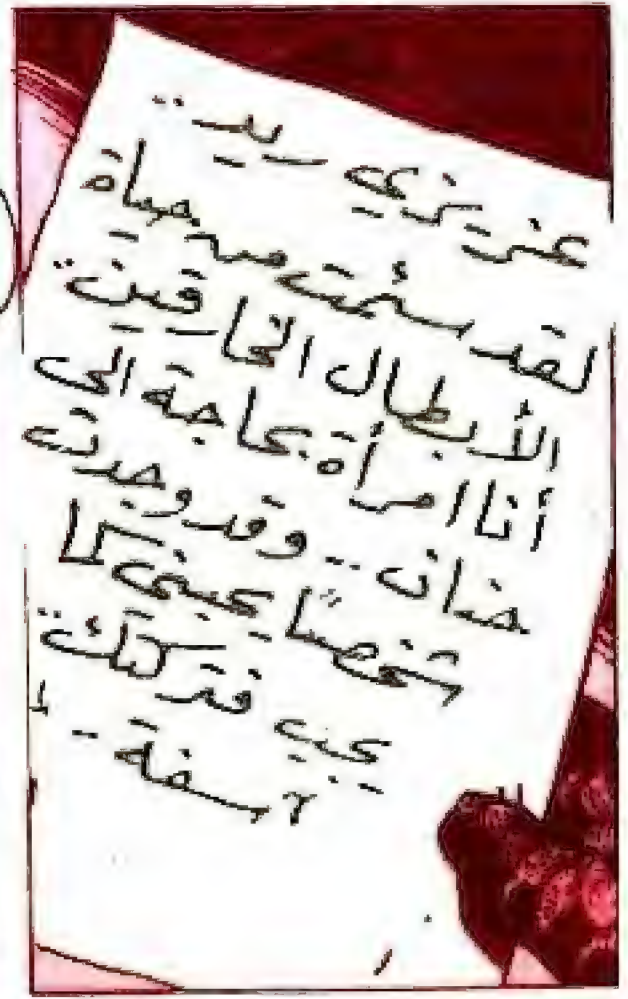 عزيزي ريد..
لقد سئمت من حياة
الأبطال الخارقين..
أنا امرأة بحاجة الى
حنان.. وقد وجدت
شخصًا يحبني كما
يجب فتركتك..
آسفة..!